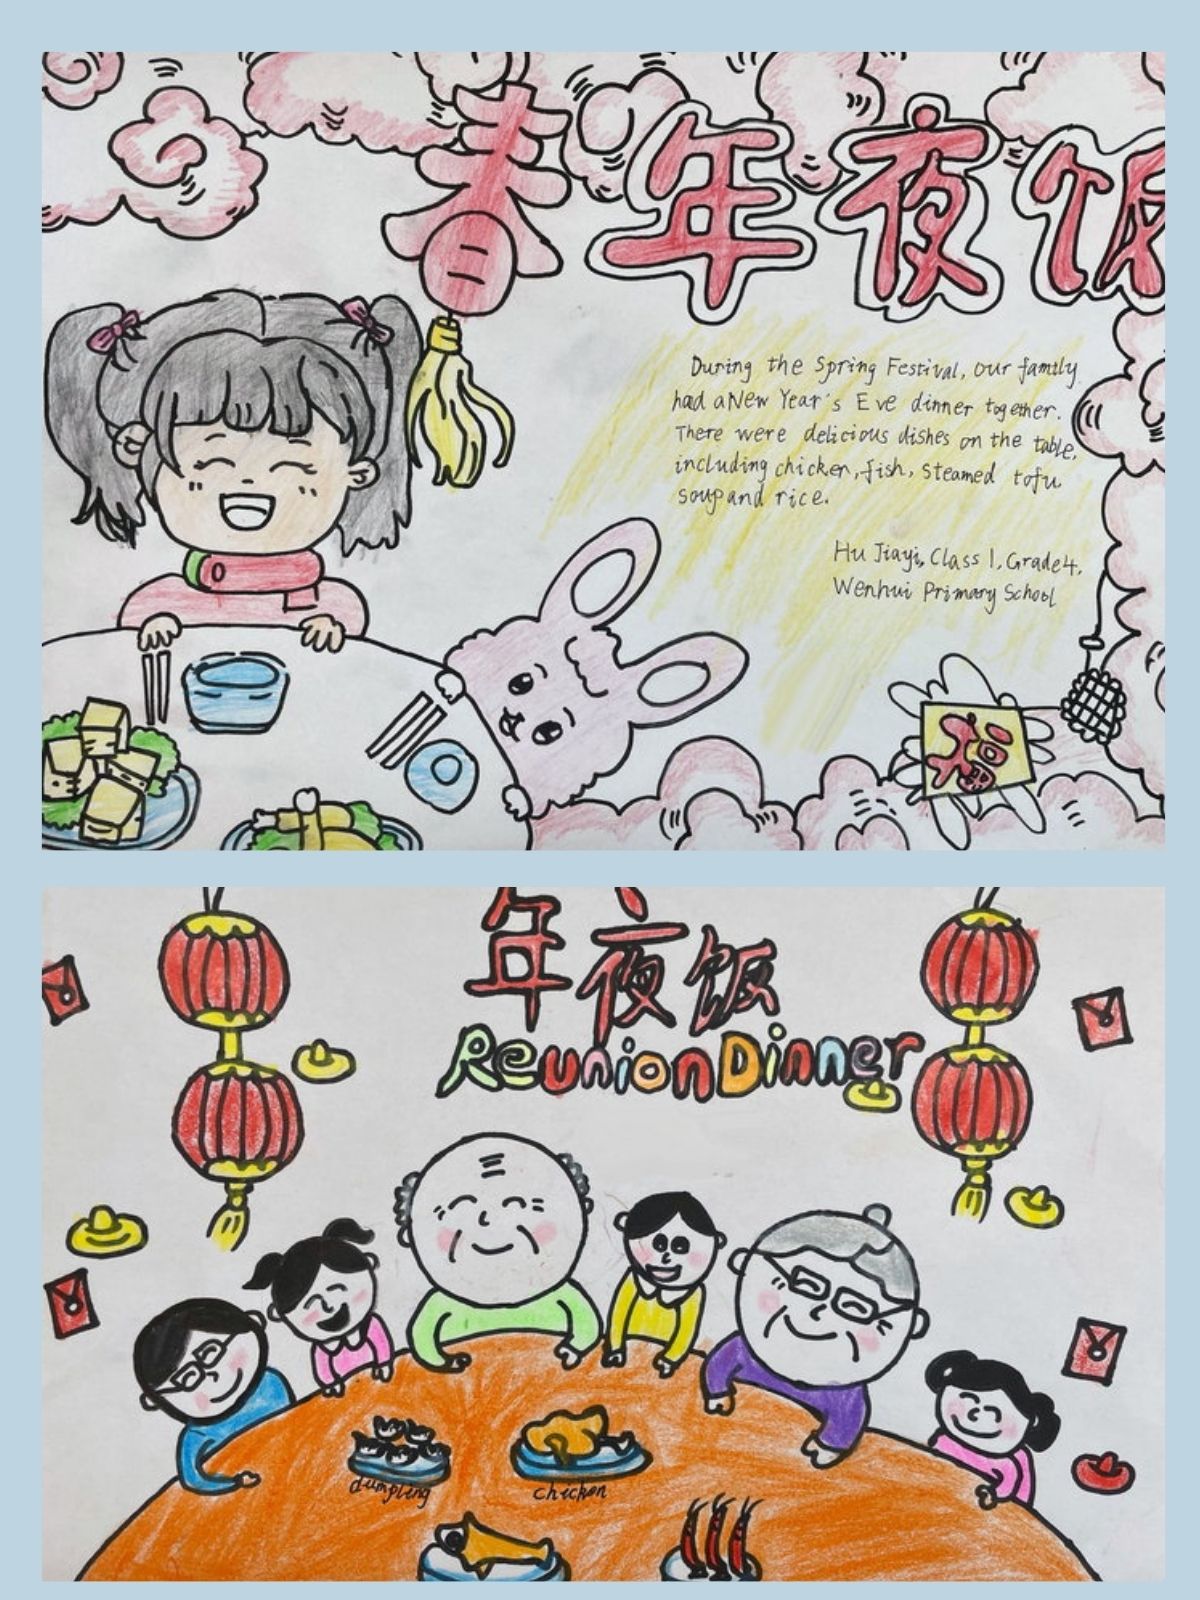 春年夜饭
During the Spring Festival, our family
had a New Year's Eve dinner together.
There were delicious dishes on the table,
including chicken, fish, steamed tofu
soup and rice.
Hu Jiayi, Class 1, Grade 4,
Wenhui Primary School
福
年夜饭
Reunion Dinner
dumpling
chicken